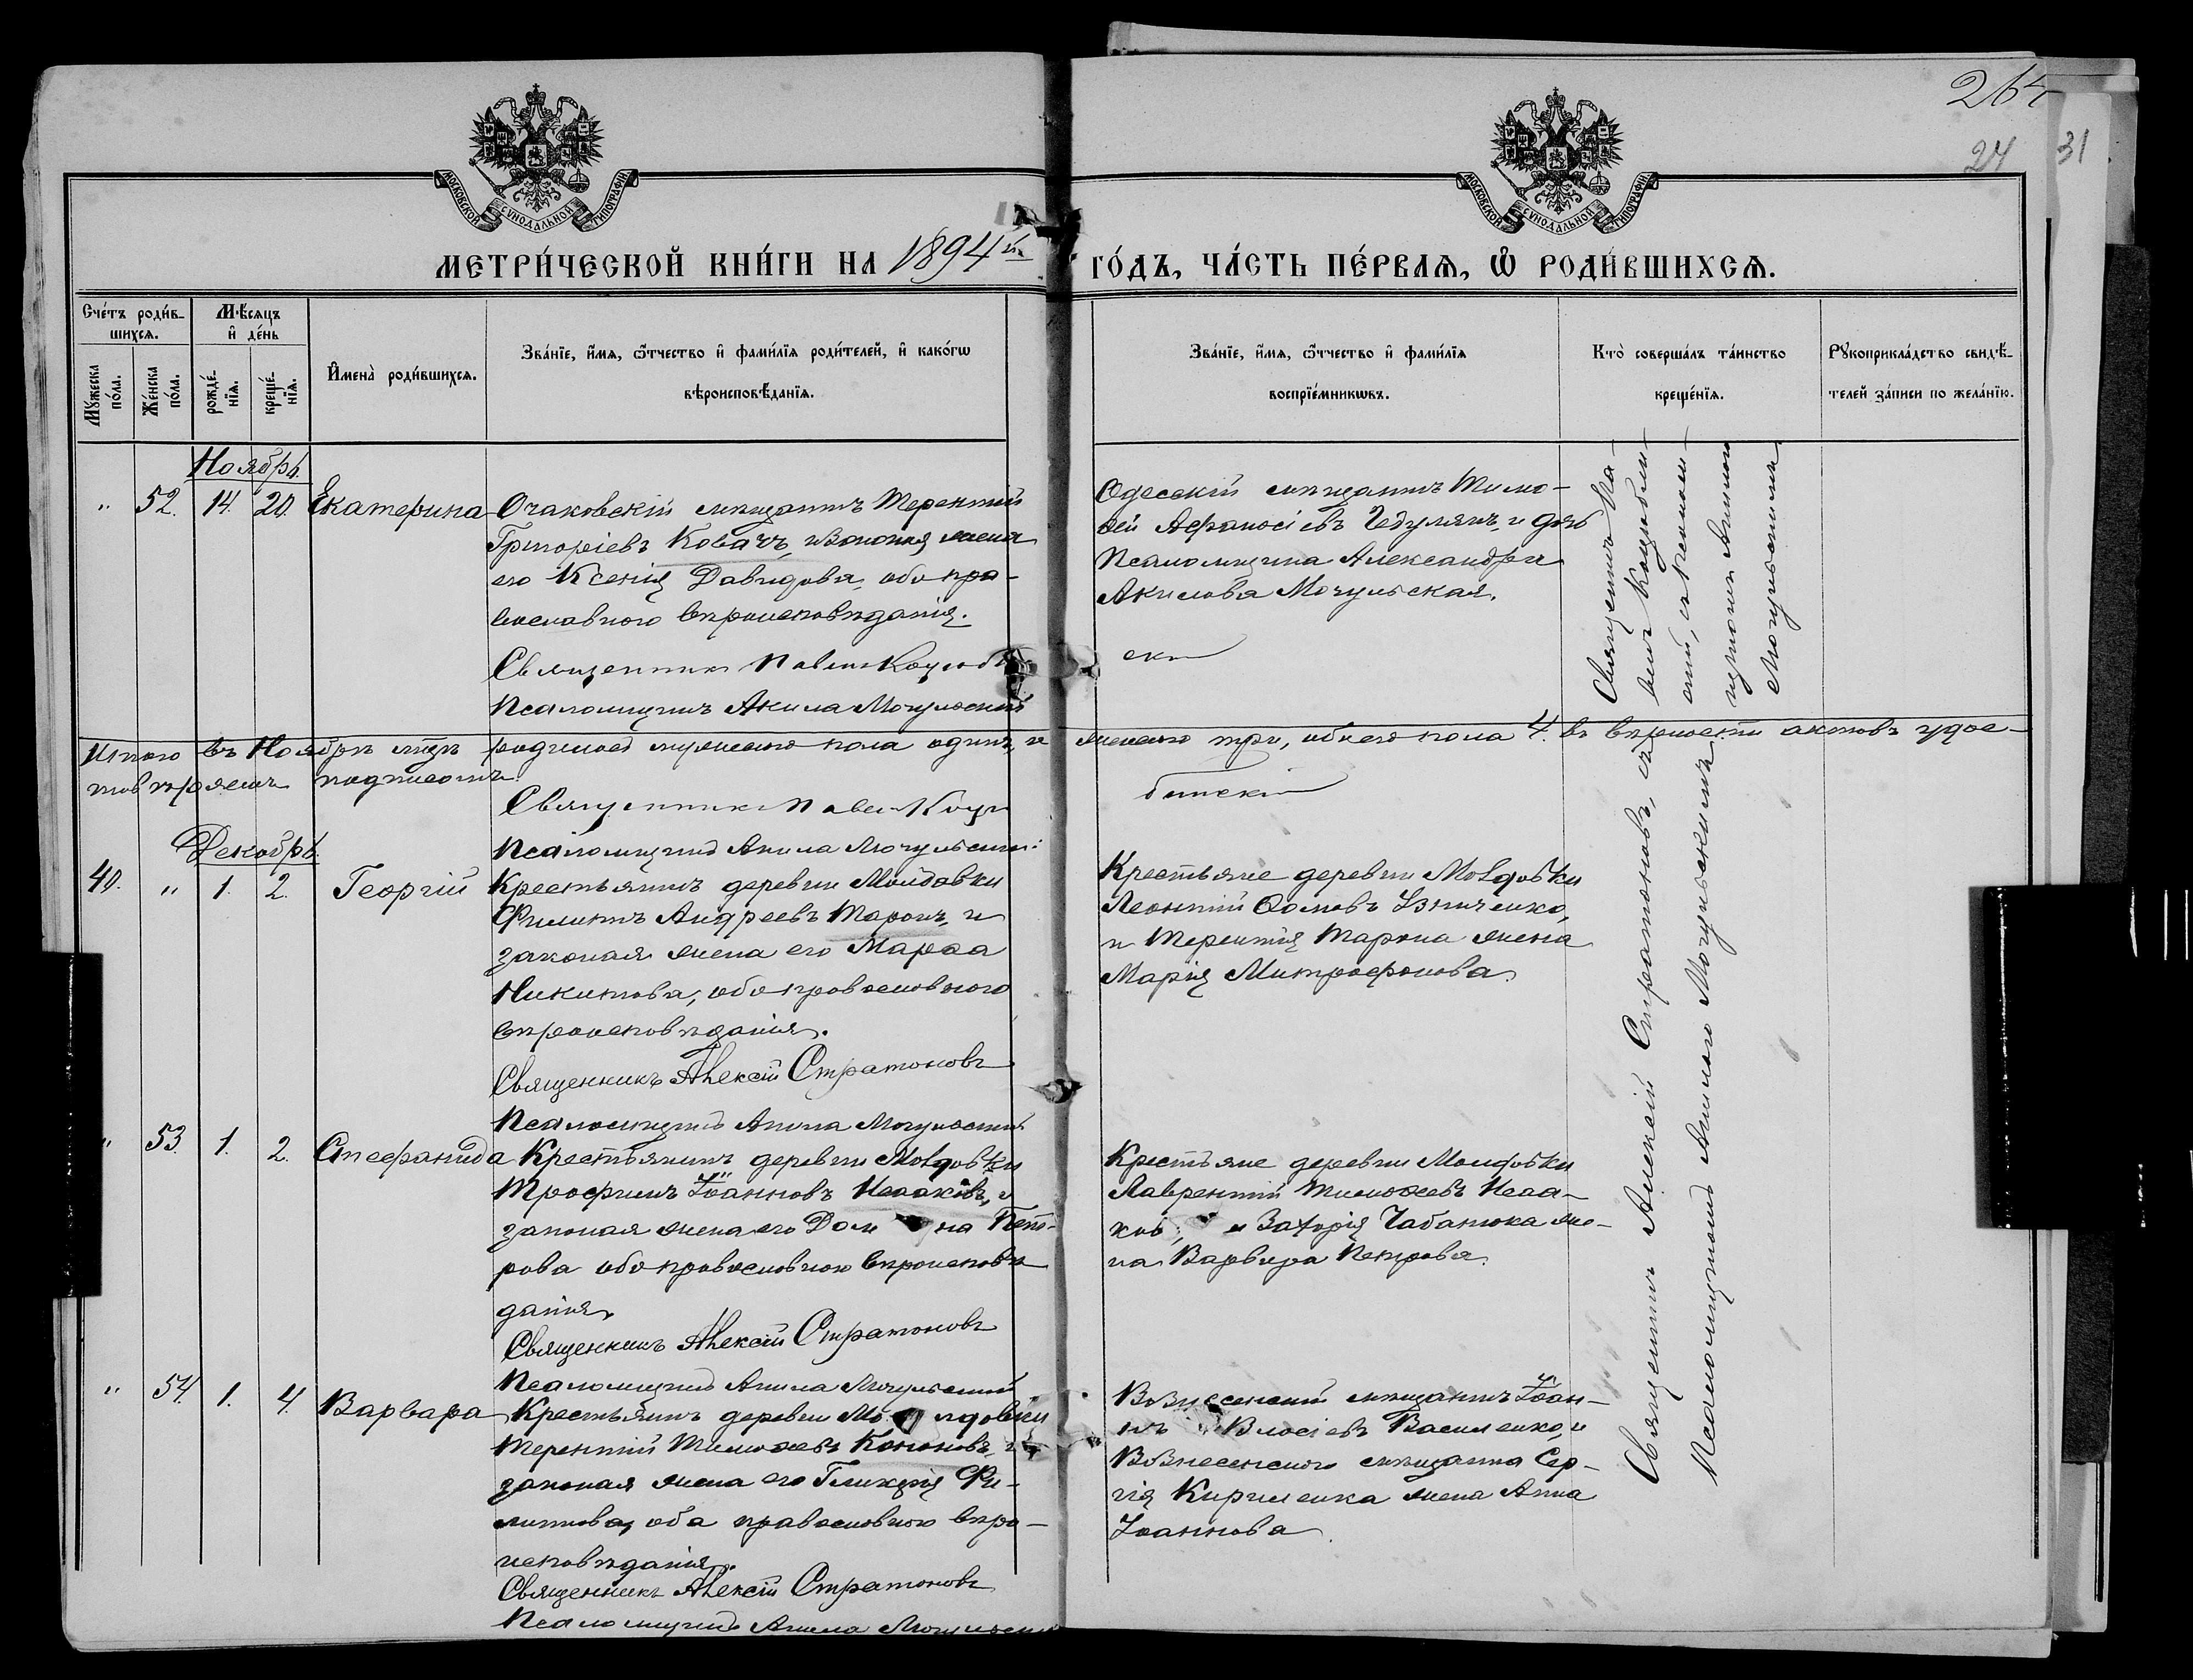 264
24
31
МОСКОВСКОЙ СѴНОДАЛЬНОЙ ТИПОГРАФІИ
МОСКОВСКОЙ СѴНОДАЛЬНОЙ ТИПОГРАФІИ
МЕТРИ́ЧЕСКОЙ КНИ́ГИ НА 1894й ГО́ДЪ, ЧА́СТЬ ПЕ́РВАѦ, Ѽ РОДИ́ВШИХСѦ.
Сче́тъ роди́в-
шихсѧ.
Мѣ́сѧцъ
и҆ де́нь
Мꙋ́жеска
по́ла.
Же́нска
по́ла.
рожде́-
нїѧ.
креще́-
нїѧ.
И҆мена̀ роди́вшихсѧ.
Зва́нїе, и҆́мѧ, ѻ҆́тчество и҆ фами́лїѧ роди́телей, и҆ како́гѡ
вѣроисповѣ́данїѧ.
Зва́нїе, и҆́мѧ, ѻ҆́тчество и҆ фами́лїѧ
воспрїе́мникѡвъ.
Кто̀ соверша́лъ та́инство
креще́нїѧ.
Рꙋкоприкла́дство свидѣ́-
телей за́писи по жела́нїю.
Ноябрь.
" 52. 14. 20. Екатерина
Очаковскій мѣщанинъ Терентій
Григоріевъ Ковачъ, и законная жена
его Ксенія Давидова, оба пра-
вославного вѣроисповѣданія.
Священникъ Павелъ Коцюб
ски
Псаломщикъ Акила Могульскій
Одесскій мѣщанинъ Тимо-
ѳей Афанасіевъ Чедулянъ, и дочь
Псаломщика Александра
Акилова Могульская.
Священникъ Па-
велъ Коцюбин-
скій, съ Псалом-
щикомъ Акилою
Могульскимъ
Итого въ Ноябрѣ мцѣ родилось мужеского пола одинъ, и женского три, обоего пола 4. въ вѣрности актовъ удос-
товѣряемъ подписомъ
Священникъ Павелъ Коцю
бинскій
Псаломщикъ Акила Могульскій
Декабрь.
40. " 1. 2. Георгій
Крестьянинъ деревни Молдовки
Филиппъ Андреевъ Таранъ, и
законая жена его Марѳа
Никитова, оба православного
вѣроисповѣданія.
Священникъ Алексій Стратоновъ
Псаломщикъ Акила Могульскій
Крестьяне деревни Молдовки
Леонтій Ѳомовъ Ізниченко,
и Терентія Тарана жена
Марія Митрофанова.
" 53. 1. 2. Стефанида
Крестьянинъ деревни Молдовки
Трофимъ Іоанновъ Исааковъ, и
законая жена его Дом на Пет-
рова оба православного вѣроисповѣ
данія.
Священникъ Алексій Стратоновъ
Псаломщикъ Акила Могульскій
Крестьяне деревни Молдовки
Лаврентій Тимоѳеевъ Исаа-
ковъ, и Захарія Чабанюка же-
на Варвара Петрова.
" 54. 1. 4. Варвара
Крестьянинъ деревни Мо лдовки
Терентій Тимоѳеевъ Кононовъ, и
законая жена его Гликерія Фи-
липпова, оба православного вѣро-
исповѣданія.
Священникъ Алексій Стратоновъ
Псаломщикъ Акила Могульскій
Вознесенскій мѣщанинъ Іоан-
нъ Власіевъ Василенко, и
Вознесенского мѣщанина Сер-
гія Кириленка жена Анна
Іоаннова.
Священникъ Алексій Стратоновъ, съ
Псаломщикомъ Акилою Могульскимъ